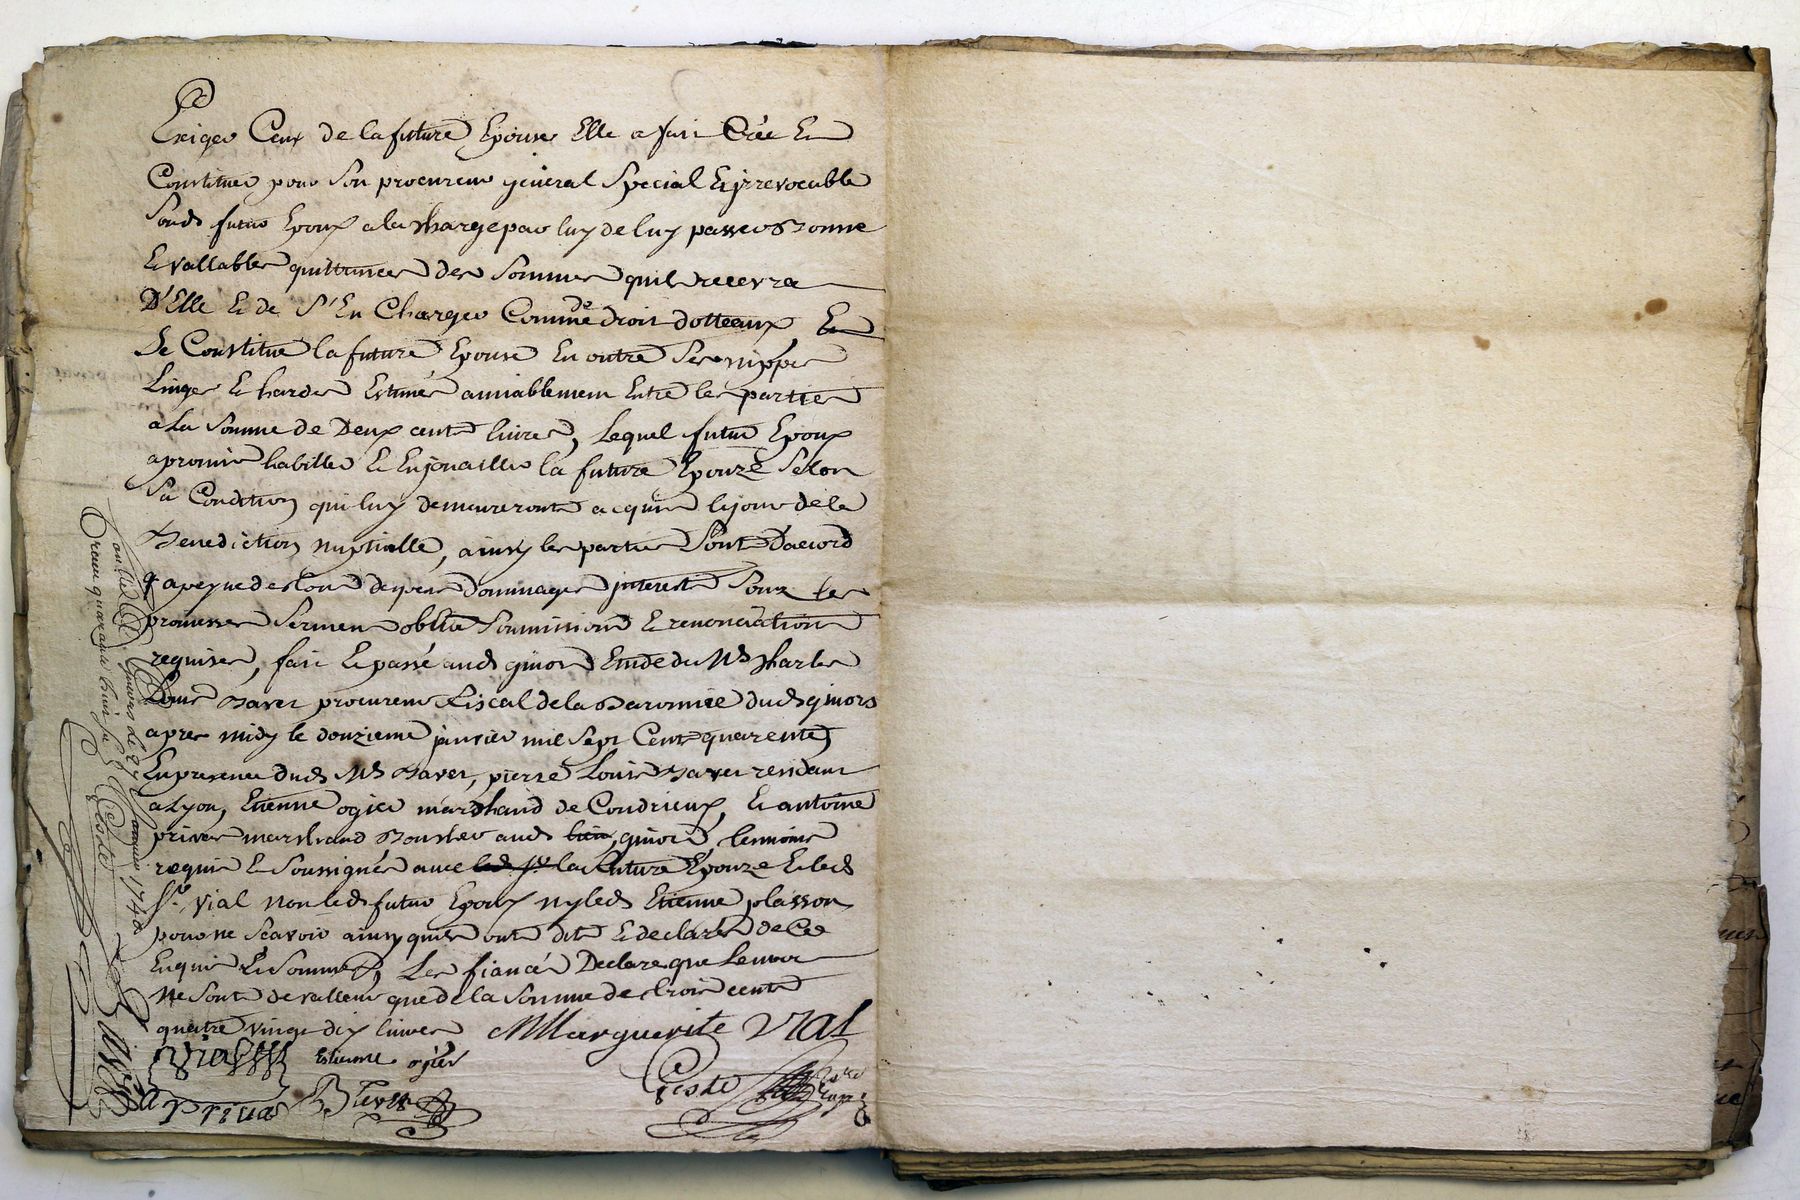 Exiger Ceux de la future Epouse Elle a fait Créé Et
Constitué pour Son procureur général Spécial Et jrrevocable
Sond futur Epoux a la Charge par luy de luy passer Bonne
Et vallable quittance des Sommes quil recevra
D'Elle Et de S'En Charger Comme de droit dotteaux Et
Se Constitue la future Epouse En outre Ses nippes
Linges Et hardes Estimés amiablement Entre les parties
a la Somme de Deux cents livres, Lequel futur Epoux
a promis habiller Et Enjouailler la future Epouze Selon
Sa Condition qui luy demeureront acquis le jour de la
Benediction nuptialle, ainsy les parties Sont Daccord
a peyne de tous depens Dommages jnterests Sous les
promesses Serment oblig Soumissions Et renonciations
requises, fait Et passé aud givors Etude du Me Charles
Louis Bavet procureur fiscal de la Baronnie dud givors
apres midy le douzieme janvier mil Sept Cent quarente
En presence dud Me Bavet, pierre Louis Bavet residant
a Lyon, Etienne ogier marchand de Condrieux, Et antoine
privas marchand Boucher aud givors, temoins
requis Et Soussignés avec la future Epouze Et led
Sr. vial non led futur Epoux ny led Etienne plasson
pour ne Scavoir ainsy quils ont dit Et declaré de Ce
Enquis Et Sommés, Les fiancés Declare que Lenvoi
ne Sont de valleur que de la Somme de trois cents
quatre vingt dix livres M Marguerite vial
Vial Estienne ogier
A Privas Bavet Teste
Controllé a givors le 24 Janvier 1748
Receu quarante huit sols Teste
Bavet